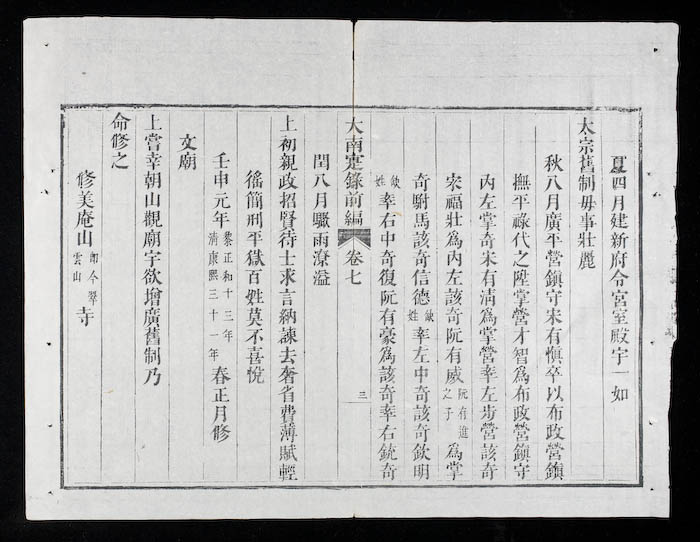 夏四月建新府令宮室殿宇一如
太宗舊制毋事壯麗
秋八月廣平營鎮守宋有慎卒以布政營鎮
撫平祿代之陞掌營才智爲布政營鎮守
内左掌奇宋有清爲掌營率左步營該奇
宋福壯爲内左該奇阮有威阮有進之子爲掌
奇駙馬該奇信德缺姓率左中奇該奇欽明
缺姓率右中奇復阮有豪爲該奇率右銃奇
大南寔錄前編 卷七 三
閏八月驟雨潦溢
上初親政招賢待士求言納諫去奢省費薄賦輕
徭簡刑平獄百姓莫不喜悅
壬申元年黎正和十三年清康熙三十一年春正月修
文廟
上嘗幸朝山觀廟宇欲增廣舊制乃
命修之
修美庵山卽今翠雲山寺